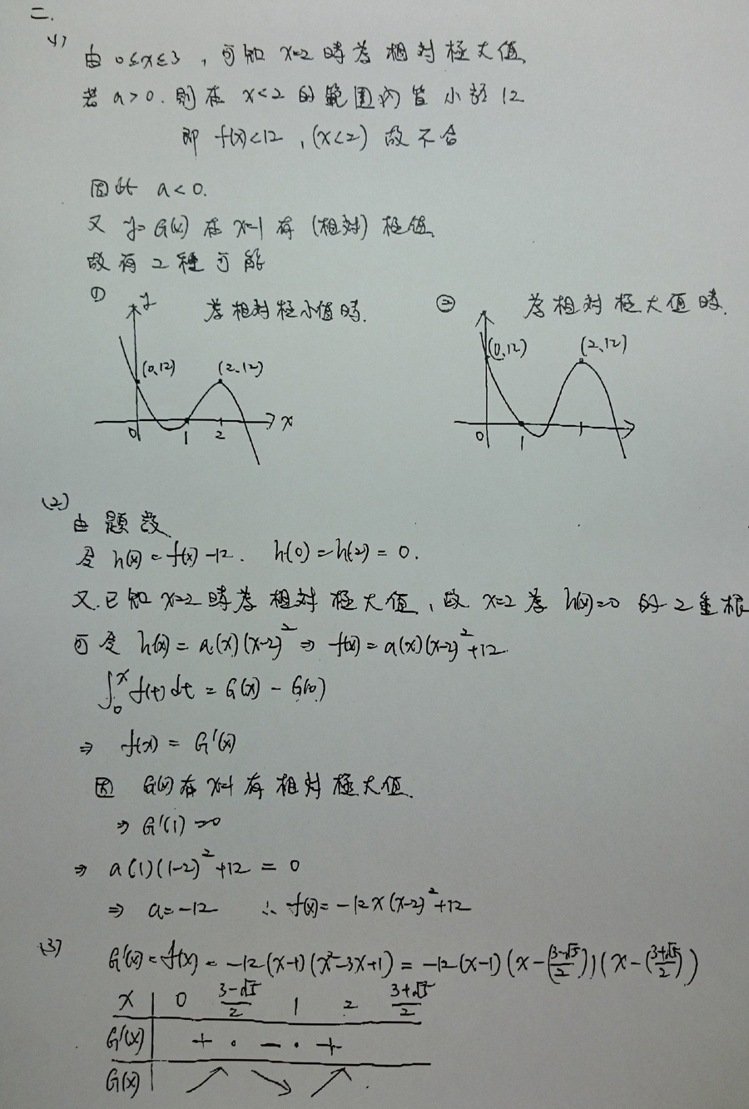 二.
(1)
由 0≤x≤3 , 可知 x=2 時為相對極大值
若 a>0. 則在 x<2 的範圍內皆小於 12
即 f(x)<12 , (x<2) 故不合
因此 a<0.
又 y=G(x) 在 x=1 有 (相對) 極值
故有 2 種可能
① 為相對極小值時.
② 為相對極大值時.
y
(0,12) (2,12)
0 1 2 x
(0,12) (2,12)
0 1
(2)
由題意
令 h(x)=f(x)-12. h(0)=h(2)=0.
又已知 x=2 時為相對極大值, 故 x=2 為 h(x)=0 的 2 重根
可令 h(x)=a(x)(x-2)² ⇒ f(x)=a(x)(x-2)²+12.
∫₀ˣ f(t)dt = G(x) - G(0)
⇒ f(x) = G'(x)
因 G(x) 在 x=1 有相對極大值.
⇒ G'(1)=0
⇒ a(1)(1-2)²+12 = 0
⇒ a=-12 ∴ f(x)=-12x(x-2)²+12
(3)
G'(x)=f(x)=-12(x-1)(x²-3x+1)=-12(x-1)(x-(3-√5)/2)(x-(3+√5)/2)
x | 0 (3-√5)/2 1 2 (3+√5)/2
G'(x) | + · - · +
G(x) | ↗ ↘ ↗